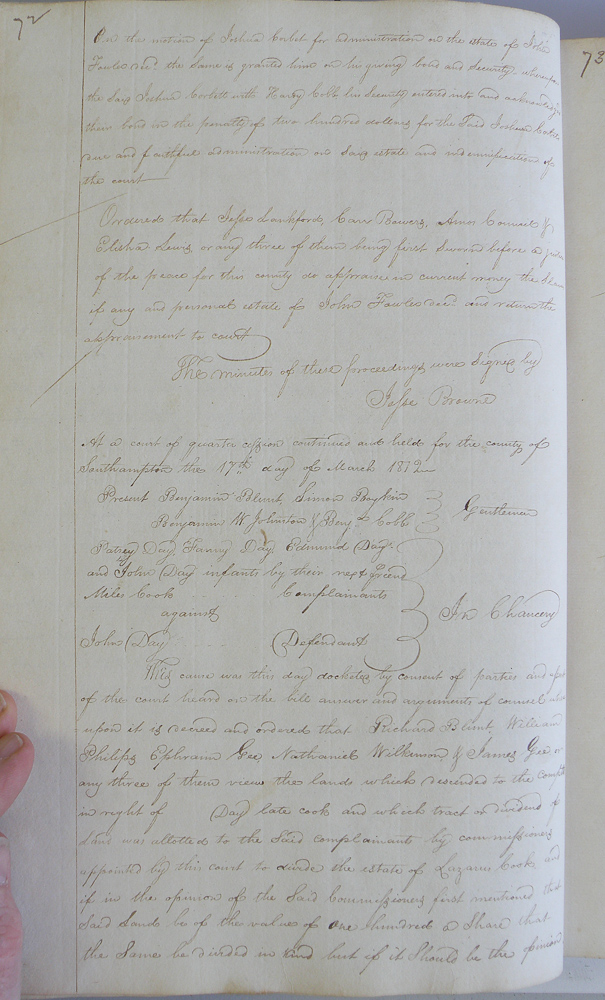 72
73
On the motion of Joshua Corbet for administration on the estate of John
Fowler decd. the same is granted him on his giving bond and security whereupon
the said Joshua Corbett with Harry Cobb his security entered into and acknowledged
their bond in the penalty of two hundred dollars for the said Joshua
due and faithful administration on said estate and indemnification of
the court
Ordered that Jesse Lankford, Carr Bowers, Amos Council &
Elisha Lewis or any three of them being first sworn before a justice
of the peace for this county do appraise in current money the slaves
if any and personal estate of John Fowler decd. and return the
appraisement to court
The minutes of these proceedings were signed by
Jesse Browne
At a court of quarter session continued and held for the county of
Southampton the 17th day of March 1812
Present Benjamin Blunt, Simon Boykin
Benjamin W Johnston & Benj. Cobb
Gentlemen
Patsey Day, Fanny Day, Edmund Day
and John Day infants by their next friend
Miles Cook Complainants
against
In Chancery
John Day Defendant
This cause was this day docketed by consent of parties and
of the court heard on the bill answer and arguments of counsel
upon it is decreed and ordered that Richard Blunt, William
Philips Ephraim Gee, Nathaniel Wilkinson, & James Gee or
any three of them view the lands which descended to the
in right of Day late Cook and which tract or dividend of
land was allotted to the said complainants by commissioners
appointed by this court to divide the estate of Lazarus Cook and
if in the opinion of the said commissioners first mentioned that
said lands be of the value of one hundred a share that
the same be divided in kind but if it should be the opinion